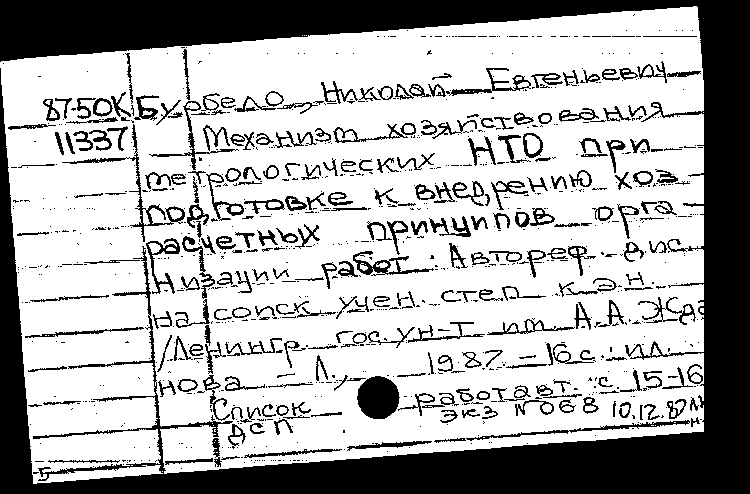 87-5OK Бурбело, Николай Евгеньевич
11337 Механизм хозяйствования
метрологических НТО при
подготовке к внедрению хоз
расчетных принципов орга-
низации работ : Автореф. дис.
на соиск учен. степ к.э.н.
/Ленингр гос. ун-т им. А.А. Жда
нова - Л., 1987 - 16 с. : ил.
Список работ авт. : с. 15-16
дсп экз N 068 10.12.87
Б